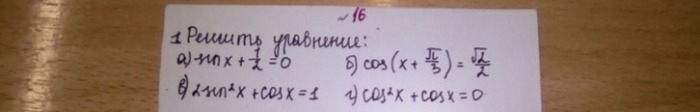 ~16
1 Решить уравнение:
а) sinx + 1/2 = 0 б) cos(x + π/3) = √2/2
в) 2sin²x + cosx = 1 г) cos²x + cosx = 0